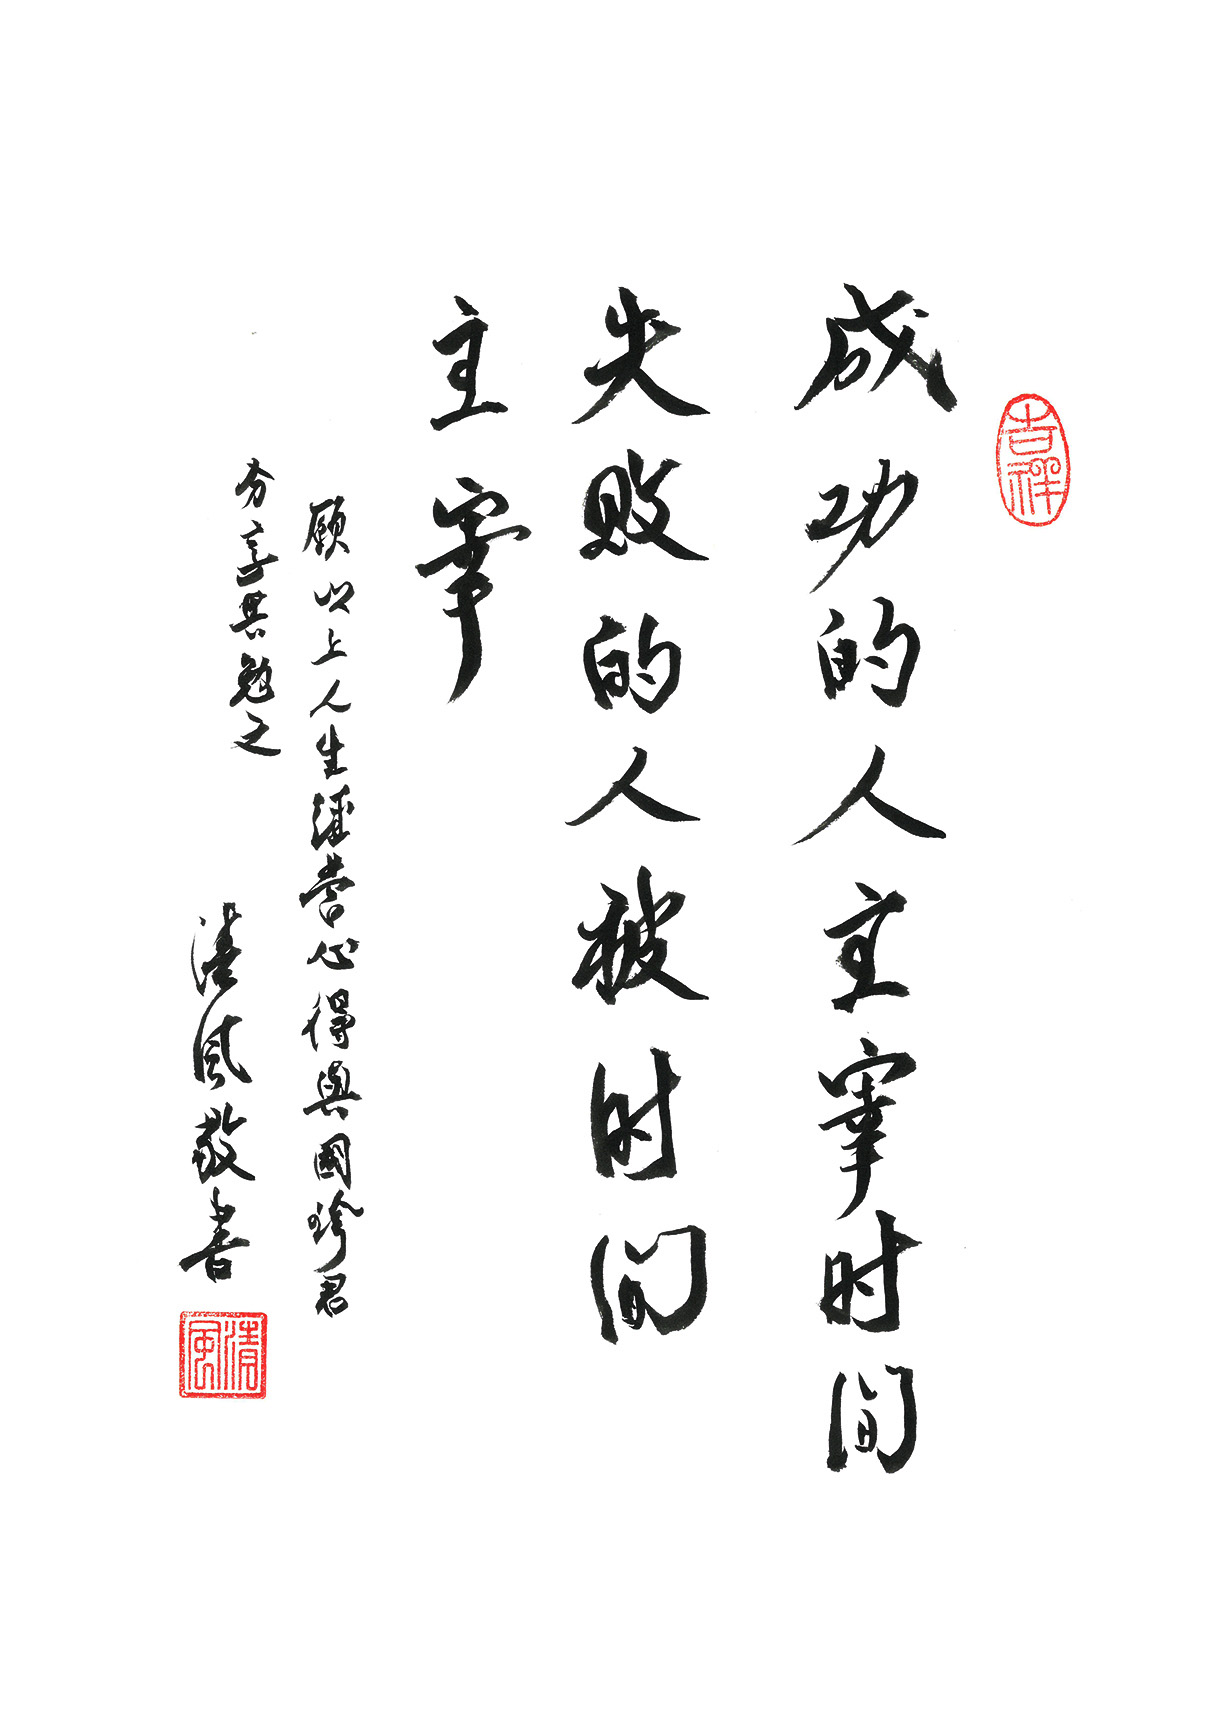 吉祥
成功的人主宰时间
失败的人被时间
主宰
愿以上人生经营心得與國珍君
分享共勉之
清风敬書
清風